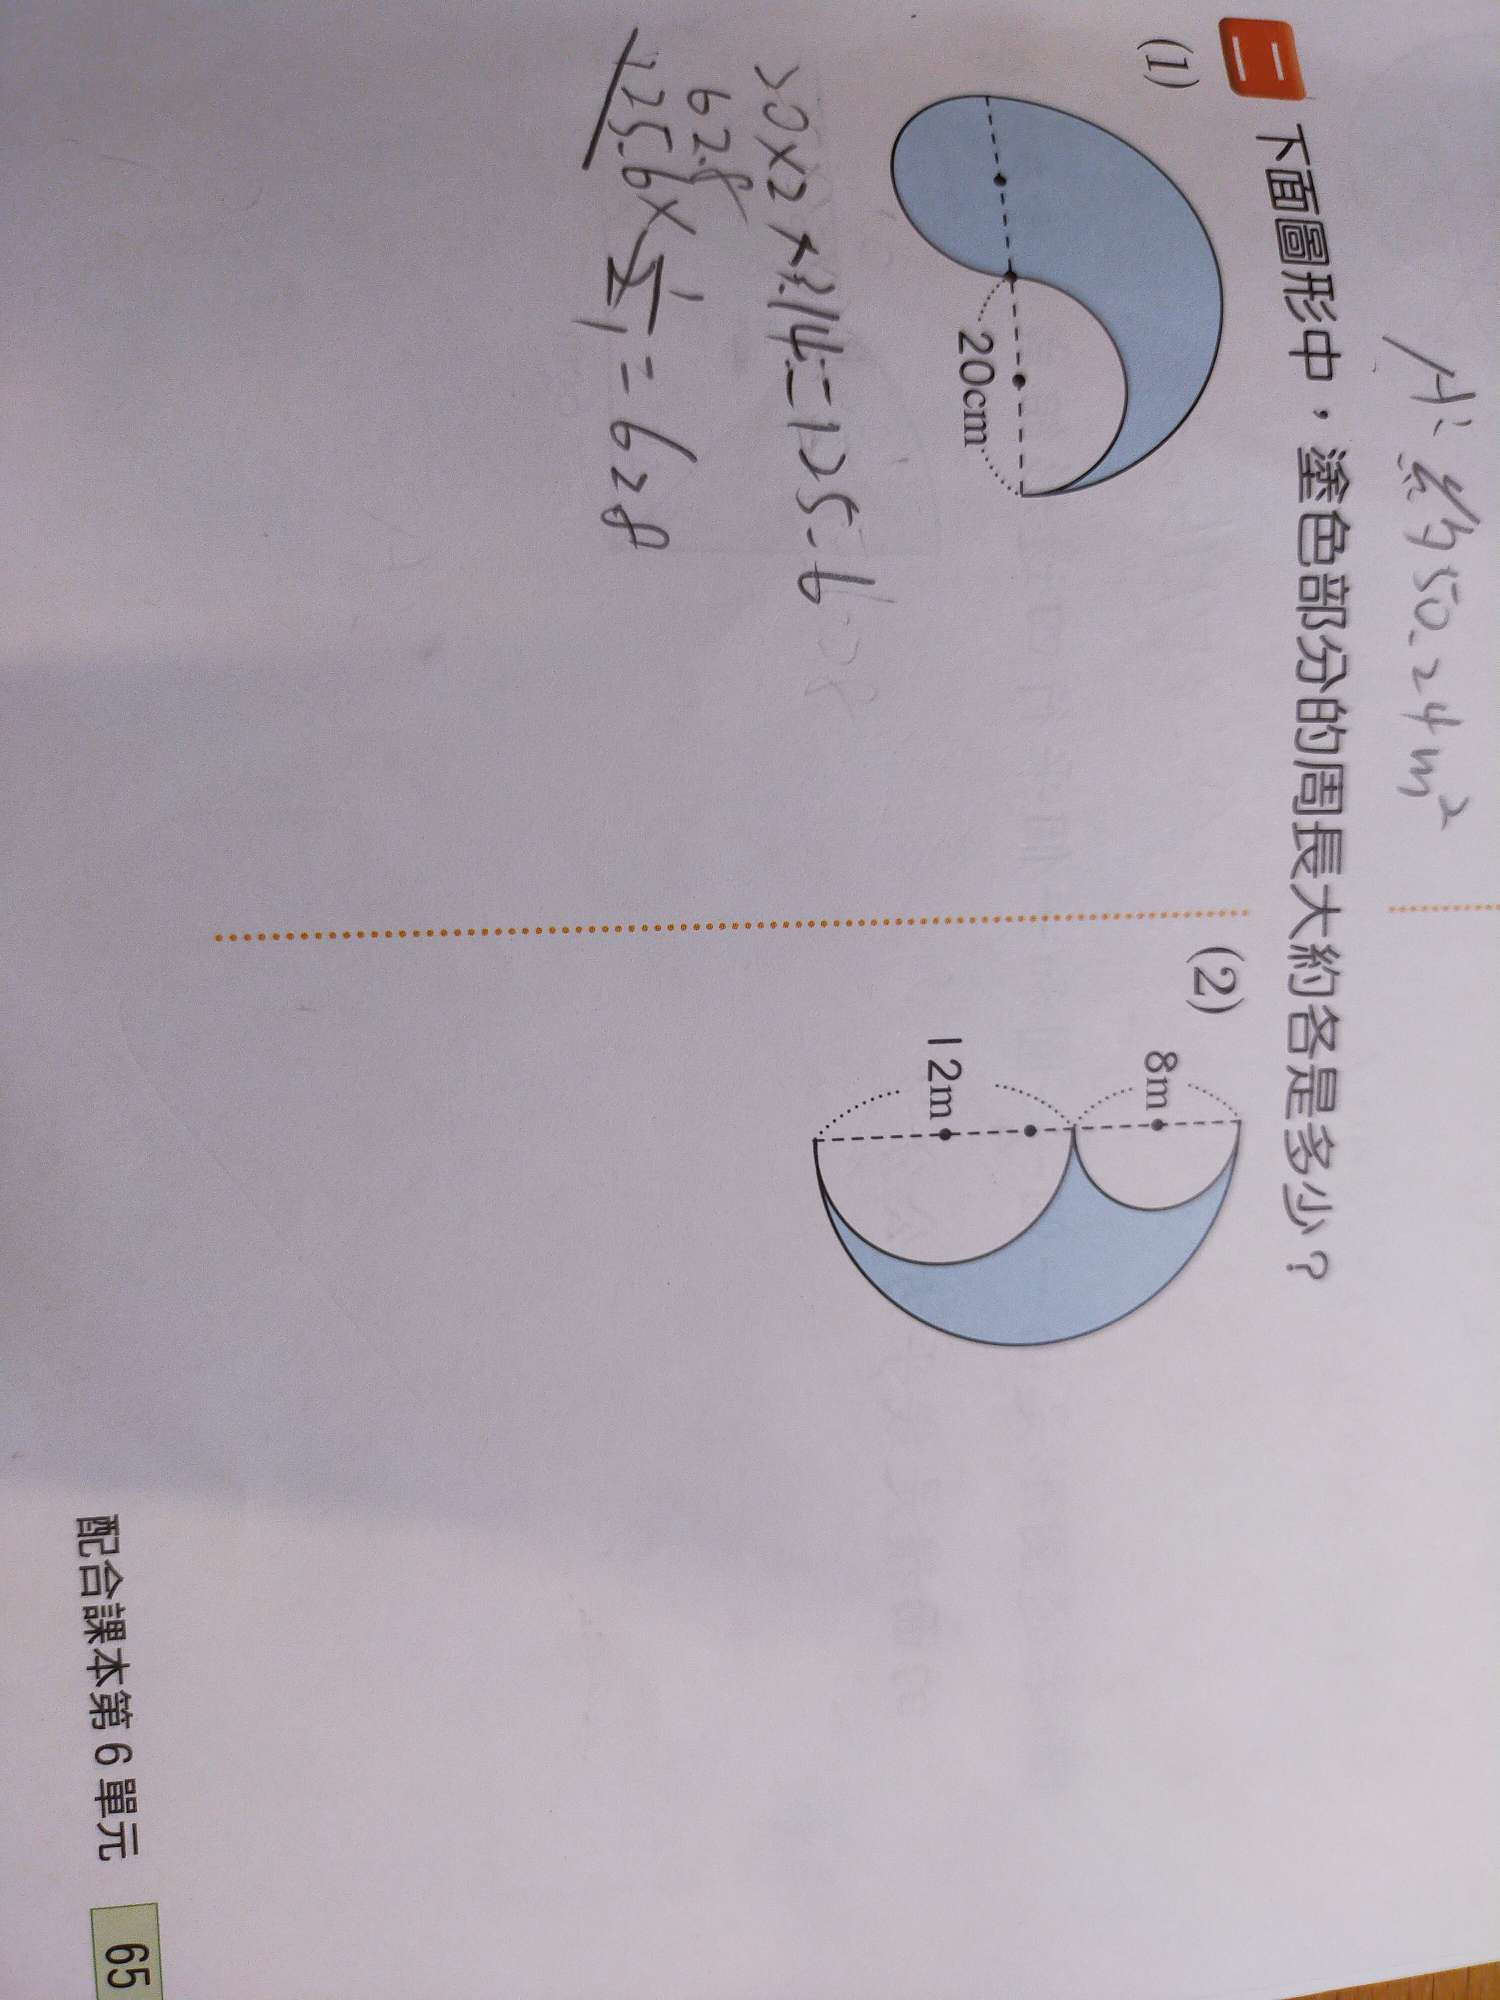 A：約50.24m²
二 下面圖形中，塗色部分的周長大約各是多少？
(1)
20cm
20×2×3.14=125.6
62.8
125.6×1/2=628
(2)
8m
12m
配合課本第6單元
65